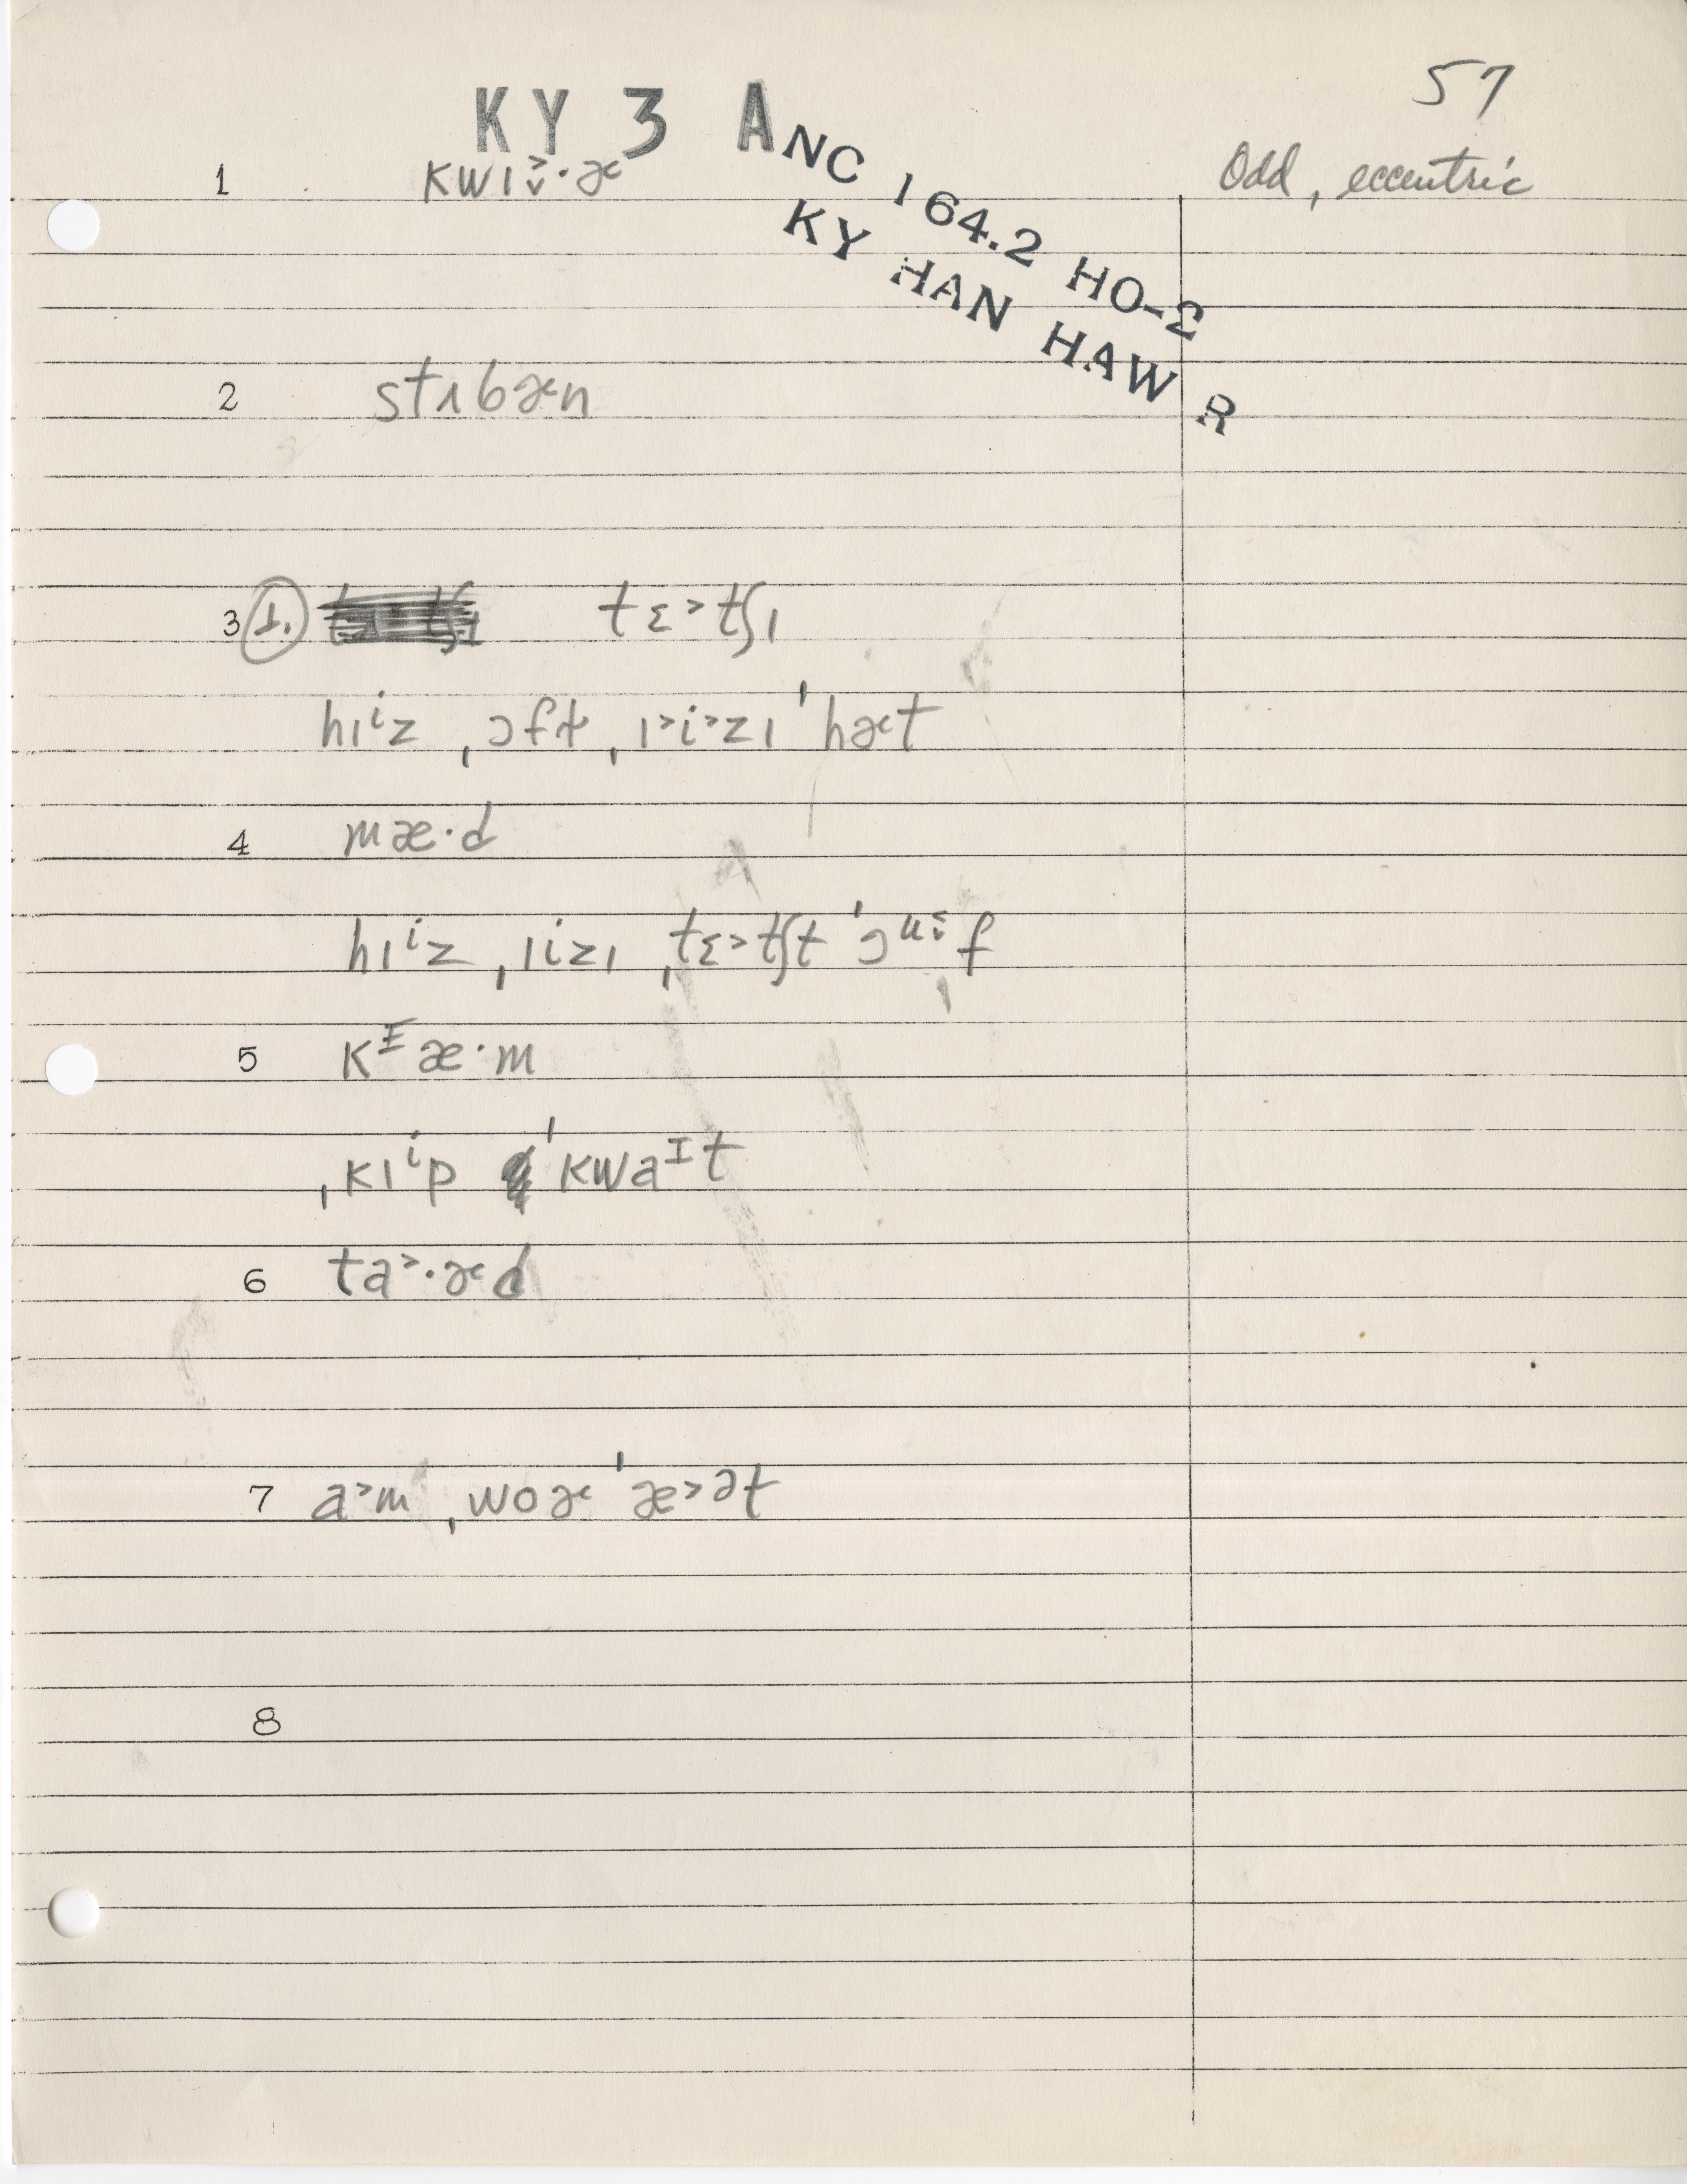 57
KY 3 A
NC 164.2 HO-2
KY HAN HAW R
1 kwɪ˃̬·ɚ Odd, eccentric
2 stʌbɚn
3 1. tɛ˃tʃɪ
hɪⁱz ˌɔftn̩ ˌɪ˃i˃zɪ ˈhɚt
4 mæ·d
hɪⁱz ˌɪizɪ ˌtɛ˃tʃt ˈɔᵘ˂̬f
5 kᴵæ·m
ˌkɪⁱp ˈkwaᴵt
6 ta˃·ɚd
7 a˃m ˌwoɚ ˈæ˃ət
8